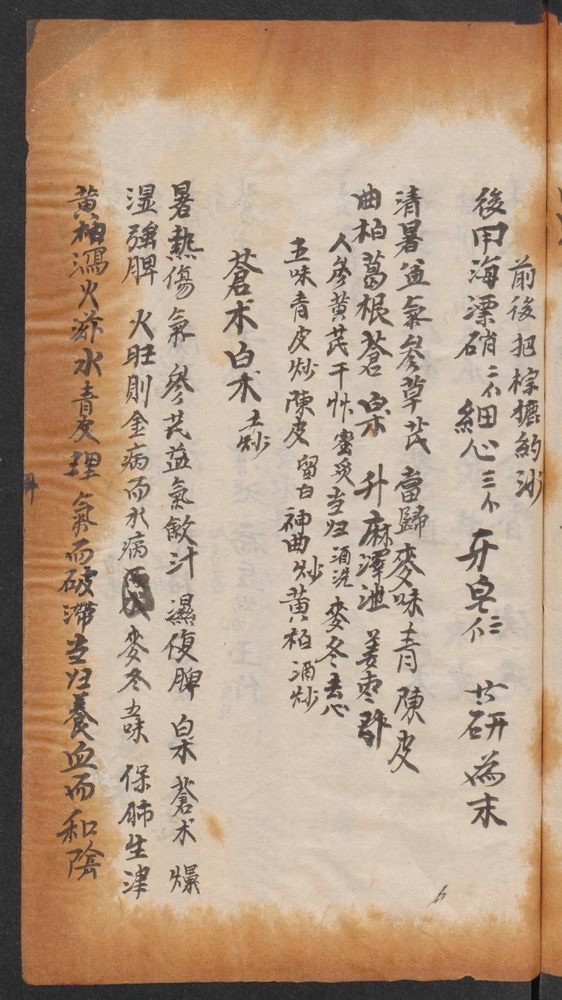 前後把棕摝約沙
後用海漂硝二个細心三个牙皂仁共研為末
清暑益氣參草芪當歸麥味青陳皮
曲柏葛根蒼白朮升麻澤泄姜枣
人參黄芪干忄炙当归酒洗麥冬去心
五味青皮炒陳皮留白神曲炒黄柏酒炒
蒼朮白朮土炒
暑熱傷氣參芪益氣歛汁濕復脾白朮蒼朮燥
湿強脾火旺則金病而水病麥冬五味保肺生津
黄柏瀉火滋水青皮理氣而破滞当归養血而和陰